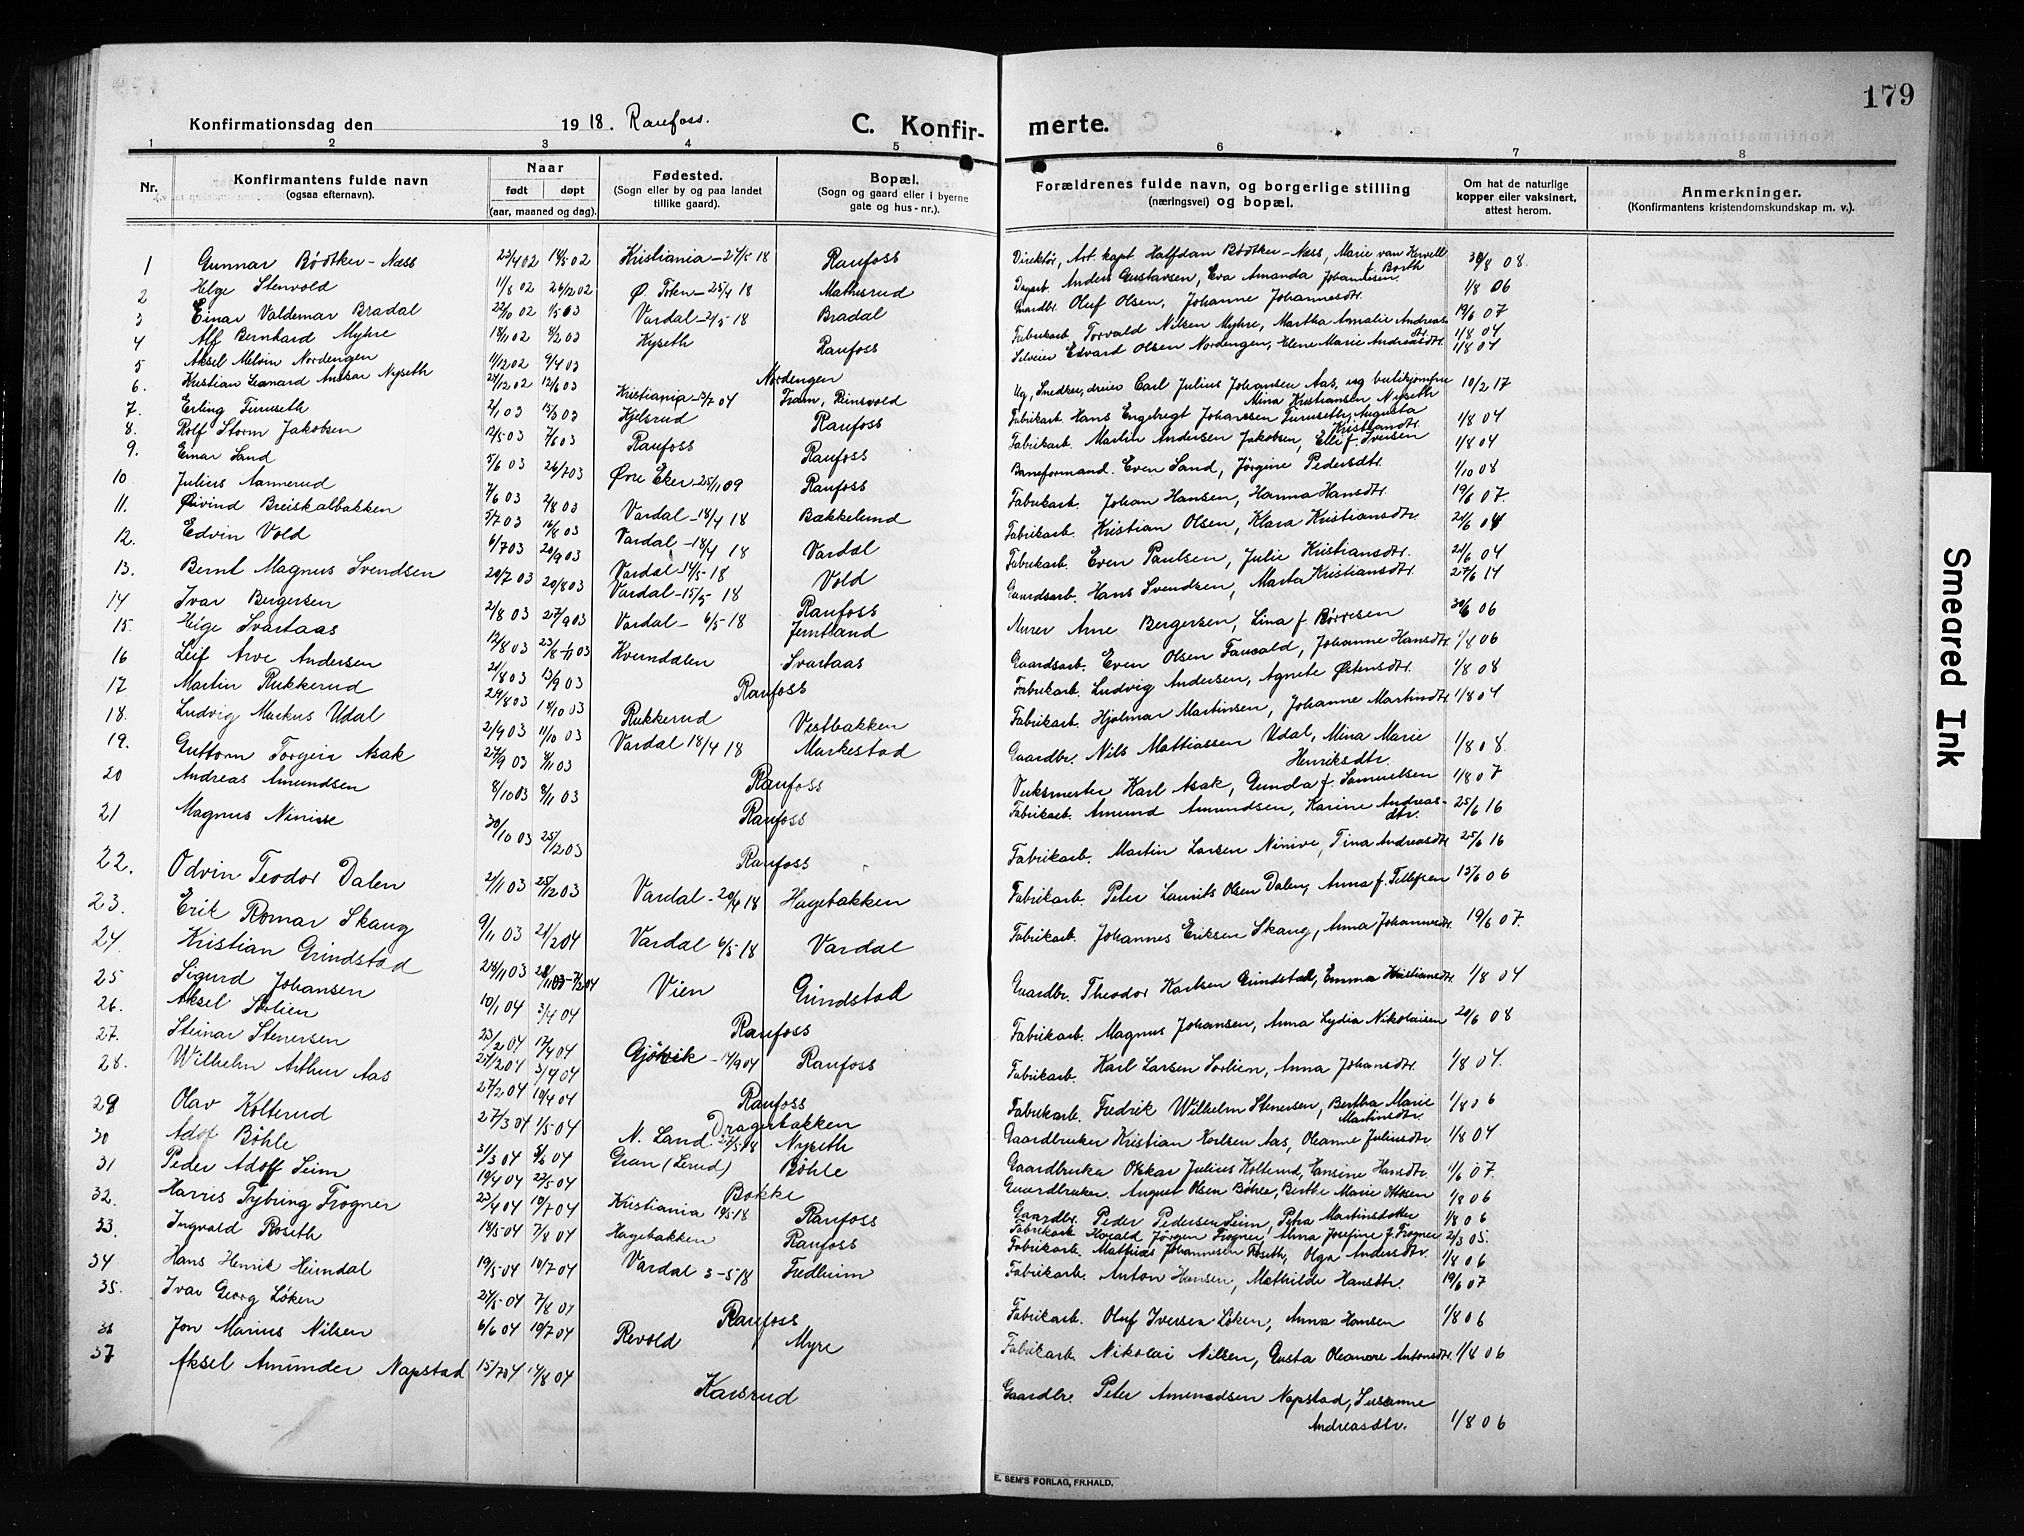 179
Konfirmationsdag den 1918. Raufoss.
C. Konfir-merte.
1 2 3 4 5 6 7 8
Nr.
Konfirmantens fulde navn
(ogsaa efternavn).
Naar
født døpt
(aar, maaned og dag).
Fødested.
(Sogn eller by og paa landet
tillike gaard).
Bopæl.
(Sogn og gaard eller i byerne
gate og hus-nr.).
Forældrenes fulde navn, og borgerlige stilling
(næringsvei) og bopæl.
Om hat de naturlige
kopper eller vaksinert,
attest herom.
Anmerkninger.
(Konfirmantens kristendomskundskap m. v.).
1 Gunnar Bødtker-Næss 18/5 02 Kristiania Raufoss Direktør, Art. kapt. Halfdan Bødtker-Næss, Marie van Kervell 30/8 08.
2 Helge Stenvold 1/8 02 26/12 02 Ø. Toten 25/4 18 Mathisrud Anders Gustavsen, Eva Amanda Johannesen 1/8 06
3 Einar Valdemar Bradal 1/5 03 Vardal 2/5 18 Bradal Gaardbr. Oluf Olsen, Johanne Johannesdtr. 19/6 07
4 Alf Bernhard Myhre 18/11 02 8/2 03 Kyseth Raufoss Fabrikarb. Torvald Nilsen Myhre, Martha Amalie Andreasdtr. 1/8 04
5 Aksel Melvin Nordengen 11/12 02 9/4 03 Nordengen Edvard Olsen Nordengen, Elene Marie Andreasdtr. 1/8 04
6. Kristian Leonard Anskar Nyseth 12/6 03 Kristiania Fram, Reinsvold Ug. Snedker, dreier Carl Julius Johansen Aas, ug. butikjomfru Mina Kristiansen Nyseth 10/2 17
7. Erling Furuseth 2/1 03 Kjelsrud Raufoss Fabrikarb. Hans Engebregt Johanssen Furuseth, Augusta Kristiansdtr. 1/8 04
8. Rolf Storm Jakobsen 12/5 03 7/6 03 Raufoss Raufoss Fabrikarb. Martin Andersen Jakobsen, Elli f. Iversen 1/8 04
9. Einar Sand 5/6 03 26/7 03 Øvre Eker 25/11 09 Raufoss Baneformand. Even Sand, Jørgine Pedersdtr. 1/10 08
10. Julius Aannerud 7/6 03 2/8 03 Vardal 18/4 18 Bækkelund Fabrikarb. Johan Hansen, Hanna Hansdtr. 19/6 07.
11. Øivind Breiskalbakken 5/7 03 16/8 03 Vardal 18/4 18 Vardal Fabrikarb. Kristian Olsen, Klara Kristiansdtr.
12. Edvin Vold 6/7 03 20/9 03 Vardal 14/5 18 Vold Fabrikarb. Even Paulsen, Julie Kristiansdtr.
13. Bernt Magnus Svendsen 20/7 03 20/8 03 Vardal 15/5 18 Raufoss Gaardsarb. Hans Svendsen, Marta Kristiansdtr. 27/6 14
14 Ivar Bergersen 2/8 03 27/9 03 Vardal 6/5 18 Jemtland Murer Arne Bergersen, Lina f. Børresen 30/6 06
15. Helge Svartaas 12/8 03 Kverndalen Svartaas Gaardsarb. Even Olsen, Johanne Hansdtr. 1/8 06
16 Leif Arve Andersen 21/8 03 13/9 03 Raufoss Fabrikarb. Ludvig Andersen, Agnete Østensdtr. 1/8 08
17. Martin Rukkerud 29/8 03 18/10 03 Rukkerud Vestbakken Fabrikarb. Hjalmar Martinsen, Johanne Martinsdtr. 1/8 04
18. Ludvig Markus Udal 2/9 03 11/10 03 Vardal 18/4 18 Markestad Gaardbr. Nils Mattiassen Udal, Mina Marie Henriksdtr. 1/8 08.
19. Guttorm Torgeir Asak 27/9 03 8/11 03 Raufoss Verksmester Karl Asak, Gunda f. Samuelsen 1/8 07
20 Andreas Amundsen 8/10 03 8/11 03 Raufoss Fabrikarb. Amund Amundsen, Karine Andreasdtr. 25/6 16
21 Magnus Ninive 30/10 03 25/12 03 Raufoss Fabrikarb. Martin Larsen Ninive, Tina Andreasdtr 25/6 16
22. Odvin Teodor Dalen 2/11 03 25/12 03 Vardal 20/4 18 Hagebakken Fabrikarb. Peter Laurits Olsen Dalen, Anna f. Tellefsen 13/6 06
23. Erik Romar Skaug 9/11 03 21/2 04 Vardal 6/5 18 Vardal Fabrikarb. Johannes Eriksen Skaug, Anna Johannesdtr. 19/6 07.
24. Kristian Grindstad Vien Grindstad Gaardbr. Theodor Karlsen Grindstad, Emma Kristiansdtr. 1/8 04
25 Sigurd Johansen 10/1 04 3/4 04 Raufoss Fabrikarb. Magnus Johansen, Anna Lydia Nikolaisen 20/6 08
26. Aksel Sorlien 23/2 04 17/4 04 Gjøvik Raufoss Fabrikarb. Karl Larsen Sorlien, Anna Johansdtr. 1/8 04.
27. Steinar Stenersen 3/4 04 Raufoss Fabrikarb. Fredrik Wilhelm Stenersen, Bertha Marie Martinsdtr. 1/8 06
28. Wilhelm Arthur Aas 27/2 04 10/4 04 Dragerbakken Gaardbruker Kristian Karlsen Aas, Oleanne Juliusdtr 1/8 04
29 Olav Kolterud 27/3 04 1/5 04 N. Land Nyseth Gaardbruker Oskar Julius Kolterud, Hansine Hansdtr. 11/6 07.
30 Adof Bøhle 31/3 04 Gran (Lerud) Bøhle Gaardbruker. August Olsen Bøhle, Berthe Marie Ottesen 1/8 06
31 Peder Adolf Seim 19/4 04 Bøkke Gaardbr. Peder Pedersen Seim, Petra Martinsdatter 1/8 06
32. Harris Tybring Frogner 23/4 04 10/7 04 Kristiania Raufoss Fabrikarb. Harald Jørgen Frogner, Anna Josefine f. Frogner 2/3 05.
33. Ingvald Roseth 18/5 04 7/8 04 Hagebakken Raufoss Fabrikarb. Mathias Johannesen Roseth, Olga Andersdtr. 1/8 06
34 Hans Henrik Heimdal 19/5 04 10/7 04 Vardal 3-5 18 Fredheim Fabrikarb. Anton Hansen, Mathilde Hansdtr. 19/6 07
35. Ivar Georg Løken 7/8 04 Raufoss Fabrikarb. Oluf Iversen Løken, Anna Hansen 1/8 06
36 Jon Marius Nilsen 6/6 04 10/7 04 Revold Myre Fabrikarb. Nikolai Nilsen, Gusta Oleanore Antonsdtr. 1/8 06
37 Aksel Amunder Napstad 15/7 04 14/8 04 Karsrud Gaardbr. Peter Amundsen Napstad, Susanne Andreasdtr. 1/8 06
E. SEM'S FORLAG, FR.HALD.
Smeared Ink